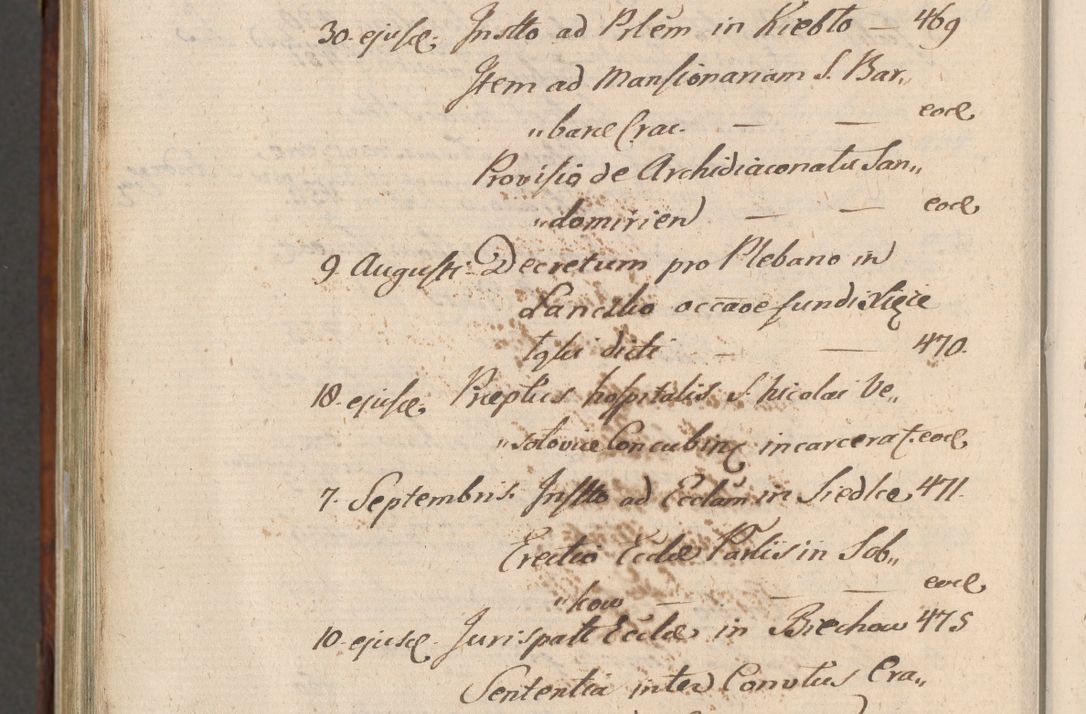 30. ejusd. Instto ad Prlem in Kiebło — 469
Item ad Mansionariam S. Bar„
„baræ Crac. — — eod.
Provisio de Archidiaconatu San„
„domirien — — eod.
9 Augusti Decretum pro Plebano in
occaoe fundi
dicti — — 470.
18. ejusd. Præptus hospitalis S. Nicolai
Concubinæ incarcerat. eod.
7. Septembris. Instto ad Ecclam in Siedlce 471.
Erectio Ecclæ Parlis in Sob„
„kow — — — eod.
10. ejusd. Jurispatt Ecclæ in Biechow 475
Sententia inter Convtus Cra„